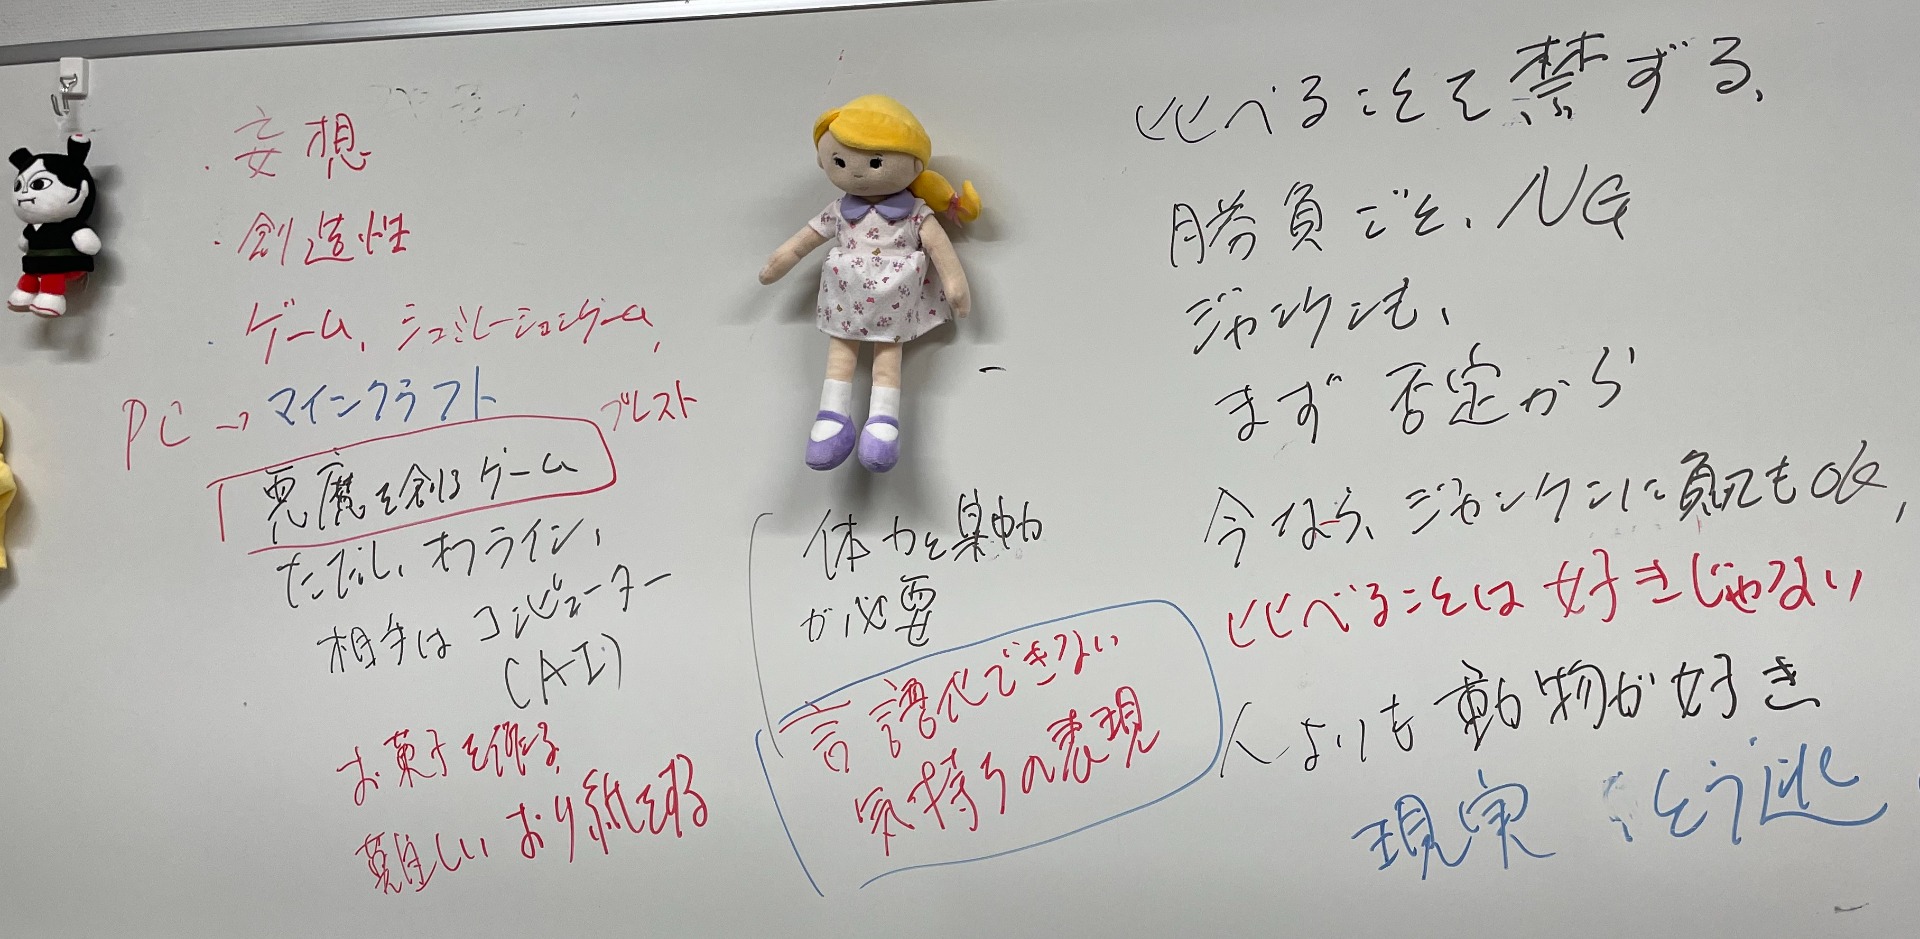 ・妄想
・創造性
・ゲーム、シュミレーションゲーム、
PC→マインクラフト
ブレスト
悪魔を創るゲーム
ただし、オフライン、
相手はコンピューター
(AI)
お菓子を作る、
難しいおり紙をする
体力と集中力
が必要
言語化できない
気持ちの表現
比べることを禁ずる、
勝負ごと、NG
ジャンケンも、
まず否定から
今なら、ジャンケンに負けてもOK、
比べることは好きじゃない
人よりも動物が好き
現実とう逃